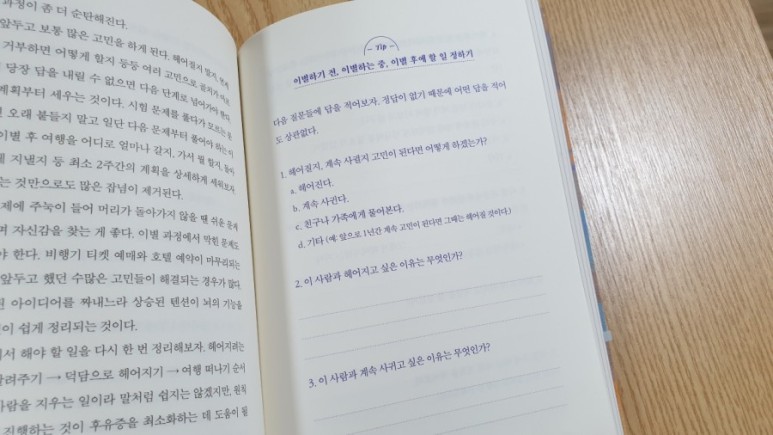 과정이 좀 더 순탄해진다.
앞두고 보통 많은 고민을 하게 된다. 헤어질지 말지, 언제
거부하면 어떻게 할지 등등 여러 고민으로
당장 답을 내릴 수 없으면 다음 단계로 넘어가야 한다.
계획부터 세우는 것이다. 시험 문제를 풀다가 모르는
오래 붙들지 말고 일단 다음 문제부터 풀어야 하는
이별 후 여행을 어디로 얼마나 갈지, 가서 뭘 할지,
지낼지 등 최소 2주간의 계획을 상세하게 세워보자
는 것만으로도 많은 잡념이 제거된다.
제에 주눅이 들어 머리가 돌아가지 않을 땐 쉬운 문제
며 자신감을 찾는 게 좋다. 이별 과정에서 막힌 문제도
야 한다. 비행기 티켓 예매와 호텔 예약이 마무리되는
앞두고 했던 수많은 고민들이 해결되는 경우가 많다.
된 아이디어를 짜내느라 상승된 텐션이 뇌의 기능을
이 쉽게 정리되는 것이다.
서 해야 할 일을 다시 한 번 정리해보자. 헤어지려는
알려주기 → 덕담으로 헤어지기 → 여행 떠나기 순서
사람을 지우는 일이라 말처럼 쉽지는 않겠지만, 원칙
진행하는 것이 후유증을 최소화하는 데 도움이 될
Tip
이별하기 전, 이별하는 중, 이별 후에 할 일 정하기
다음 질문들에 답을 적어보자. 정답이 없기 때문에 어떤 답을 적어
도 상관없다.
1. 헤어질지, 계속 사귈지 고민이 된다면 어떻게 하겠는가?
a. 헤어진다.
b. 계속 사귄다.
c. 친구나 가족에게 물어본다.
d. 기타 (예: 앞으로 1년간 계속 고민이 된다면 그때는 헤어질 것이다)
2. 이 사람과 헤어지고 싶은 이유는 무엇인가?
3. 이 사람과 계속 사귀고 싶은 이유는 무엇인가?